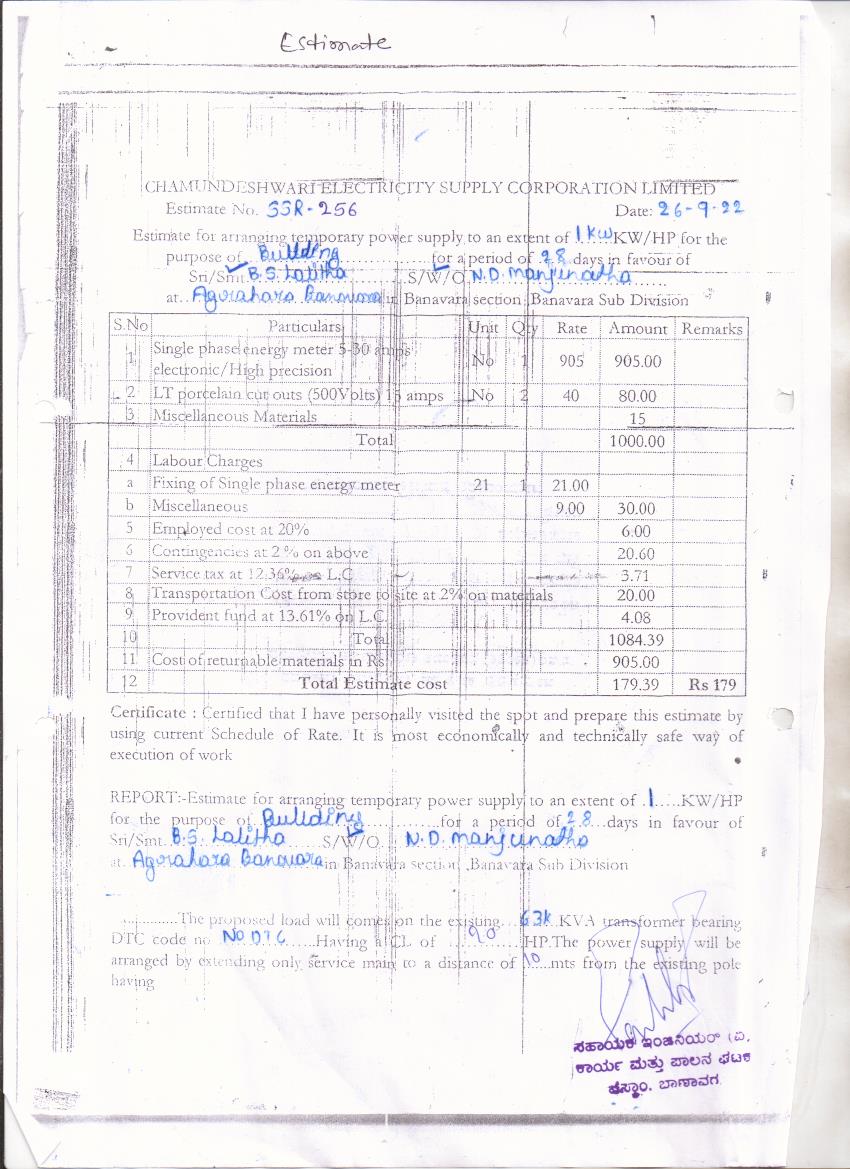 Estimate
CHAMUNDESHWARI ELECTRICITY SUPPLY CORPORATION LIMITED
Estimate No. SSR-256 Date: 26-9-22
Estimate for arranging temporary power supply to an extent of 1kw......KW/HP for the
purpose of Building......................for a period of 28 days in favour of
Sri/Smt. B.S. Lalitha ............S/W/O. N.D. Manjunatha............
at. Agrahara Banavara in Banavara section, Banavara Sub Division
S.No Particulars Unit Qty Rate Amount Remarks
1 Single phase energy meter 5-30 amps electronic/High precision No 1 905 905.00
2 LT porcelain cut outs (500Volts) 15 amps No 2 40 80.00
3 Miscellaneous Materials 15
Total 1000.00
4 Labour Charges
a Fixing of Single phase energy meter 21 1 21.00
b Miscellaneous 9.00 30.00
5 Employed cost at 20% 6.00
6 Contingencies at 2 % on above 20.60
7 Service tax at 12.36% on L.C 3.71
8 Transportation Cost from store to site at 2% on materials 20.00
9 Provident fund at 13.61% on L.C 4.08
10 Total 1084.39
11 Cost of returnable materials in Rs 905.00
12 Total Estimate cost 179.39 Rs 179
Certificate : Certified that I have personally visited the spot and prepare this estimate by
using current Schedule of Rate. It is most economically and technically safe way of
execution of work
REPORT:-Estimate for arranging temporary power supply to an extent of .1.....KW/HP
for the purpose of Building................for a period of 28...days in favour of
Sri/Smt. B.S. Lalitha ........S/W/O... N.D. Manjunatha
at. Agrahara Banavara in Banavara section ,Banavara Sub Division
............The proposed load will comes on the existing...63k.KVA transformer bearing
DTC code no No DTC......Having a CL of ....90.....HP.The power supply will be
arranged by extending only service main to a distance of 10.....mts from the existing pole
having
ಸಹಾಯಕ ಇಂಜಿನಿಯರ್ (ವಿ,
ಕಾರ್ಯ ಮತ್ತು ಪಾಲನ ಘಟಕ
ಚೆಸ್ಕಾಂ. ಬಾಣಾವರ